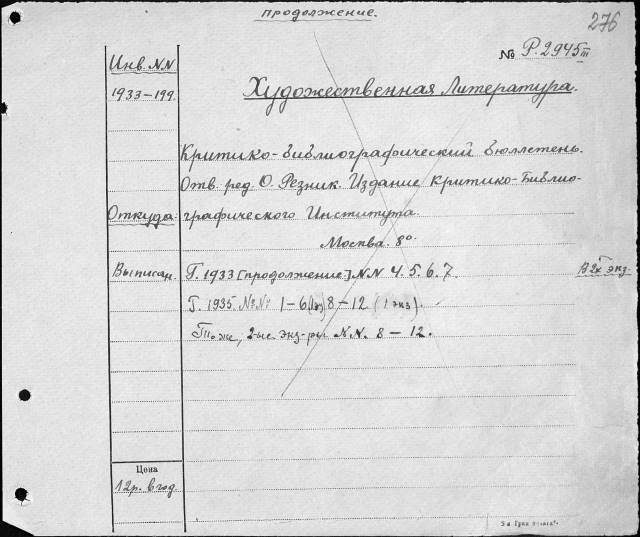 продолжение.
276
№ Р.2945 III
Инв. NN
1933–199
Художественная Литература.
Критико-библиографический Бюллетень.
Отв. ред. О. Резник. Издание Критико-Библио-
Откуда: графического Института.
Москва. 8°
Выписан. Г. 1933 [продолжение] NN 4. 5. 6. 7. В 2х экз.
Г. 1935. №№ 1–6 8–12 (1 экз).
То же, 2-ые экз-ры NN. 8–12.
Цена
12р. в год.